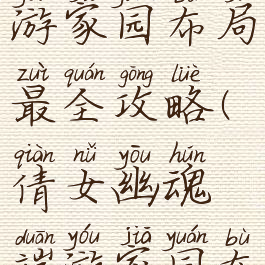 游家园布局
zuì quán gōng lüè
最全攻略(
qiàn nǚ yōu hún
倩女幽魂
duān yóu jiā yuán bù
端游家园布